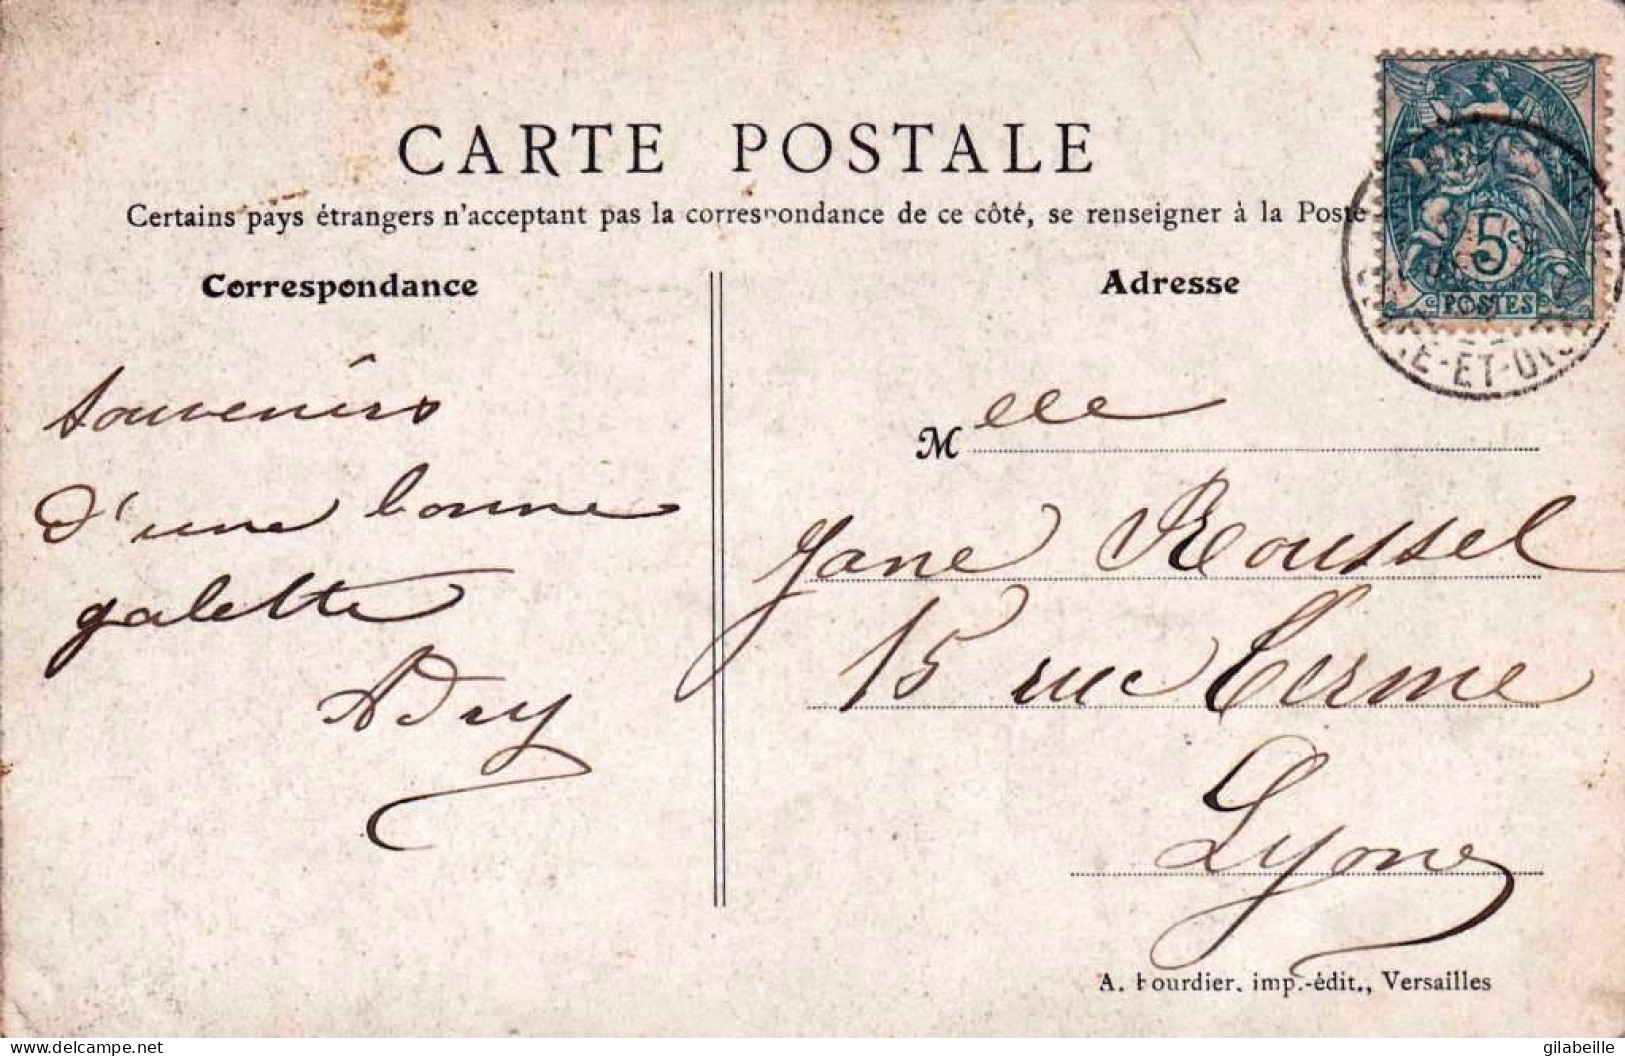 CARTE POSTALE
Certains pays étrangers n'acceptant pas la correspondance de ce côté, se renseigner à la Poste
Correspondance
Adresse
5c
POSTES
ET-OISE
Souvenirs
d'une bonne
galette
M elle
Jane Roussel
15 rue Terme
Lyon
A. Bourdier, imp.-édit., Versailles
Delcampe.net
gilabeille